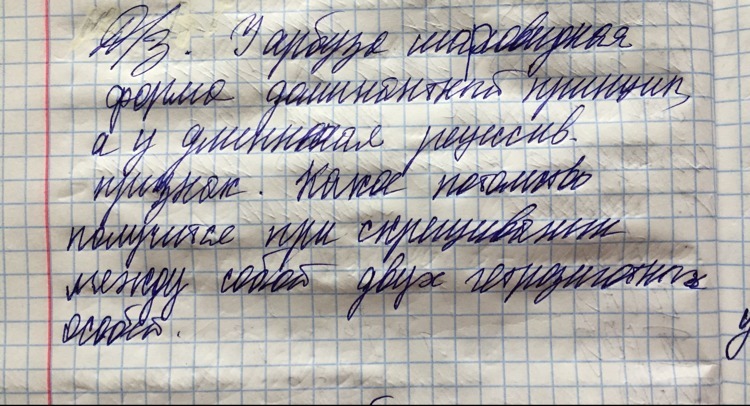 Д/з. У арбуза шаровидная
форма доминантный принцип,
а у длинная рецессив.
признак. Какое потомство
получится при скрещивании
между собой двух гетрозиготных
особей.
у